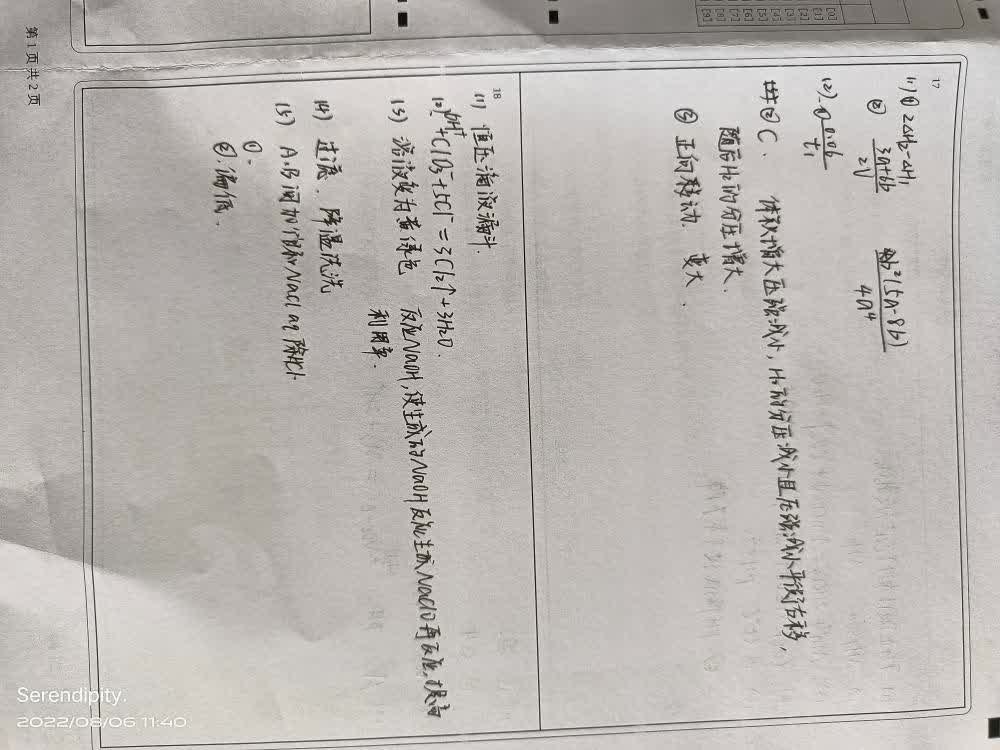 17
(1) ① 2ΔH₂-ΔH₁
② 3a+6b/2V 4b²(5a-8b)/4a⁴
(2) ① 0.06/t₁
② C. 体积增大压强减小, H₂的分压减小且压强减小平衡右移,
随后H₂的分压增大.
③ 正向移动. 变大.
18
(1) 恒压滴液漏斗.
(2) 6H⁺+ClO₃⁻+5Cl⁻=3Cl₂↑+3H₂O.
(3) 溶液变为黄绿色 反应NaOH, 使生成的NaOH反应生成NaClO再反应, 提高
利用率.
(4) 过滤. 降温洗洗
(5) A.B间加饱和NaCl aq 除HCl.
①.
②. 偏低.
第 1 页 共 2 页
[0]
[1]
[2]
[3]
[4]
[5]
[6]
[7]
[8]
[9]
Serendipity.
2022/08/06 11:40